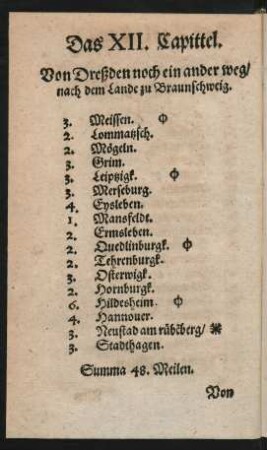 Das XII. Capittel.
Von Dreßden noch ein ander weg/
nach dem Lande zu Braunschweig.
3. Meissen. Φ
2. Lommatzsch.
2. Mögeln.
3. Grim.
3. Leiptzigk. Φ
3. Merseburg.
4. Eysleben.
1. Mansfeldt.
2. Ermsleben.
2. Quedlinburgk. Φ
2. Tehrenburgk.
3. Osterwigk.
2. Hornburgk.
6. Hildesheim. Φ
4. Hannouer.
3. Neustad am rübčberg/ ✱
3. Stadthagen.
Summa 48. Meilen.
Von